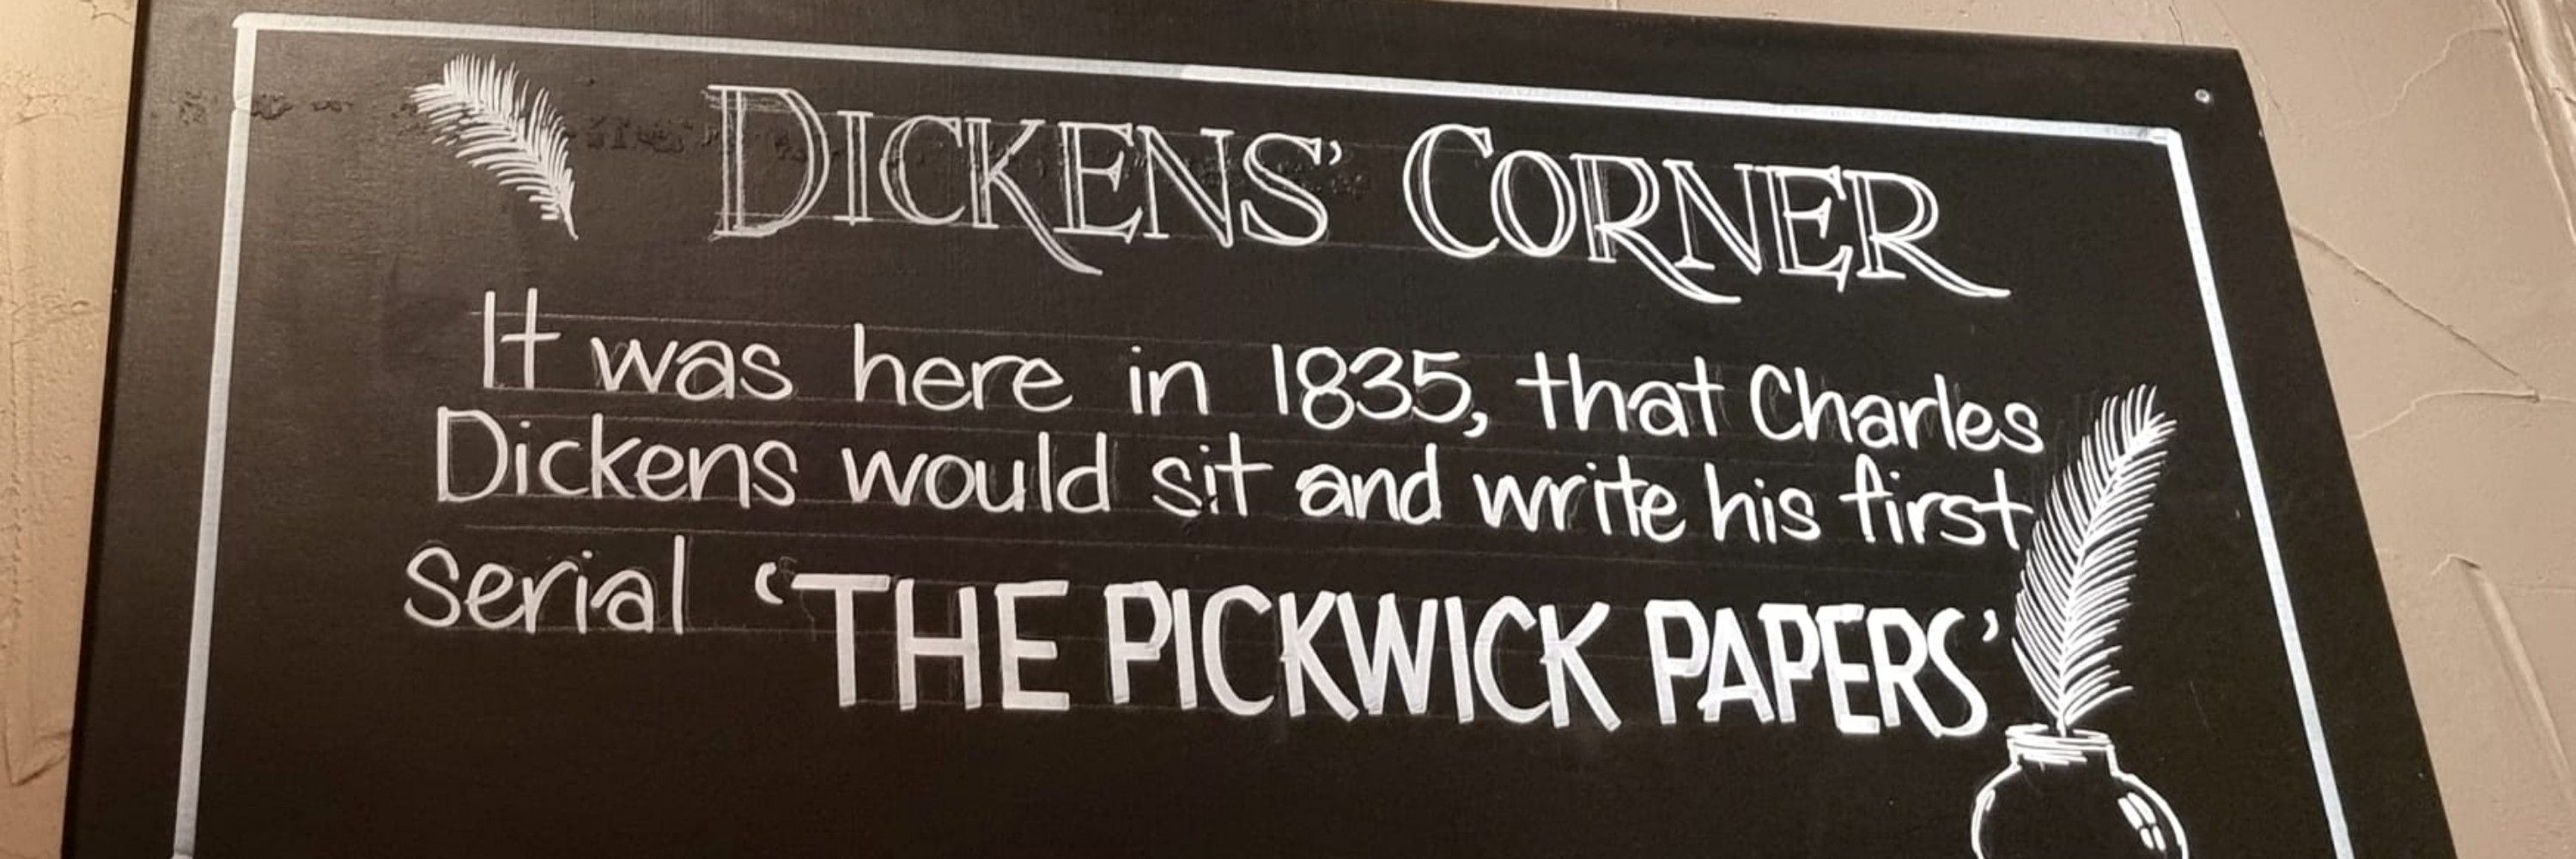 DICKENS' CORNER
It was here in 1835, that Charles
Dickens would sit and write his first
serial ‘THE PICKWICK PAPERS’